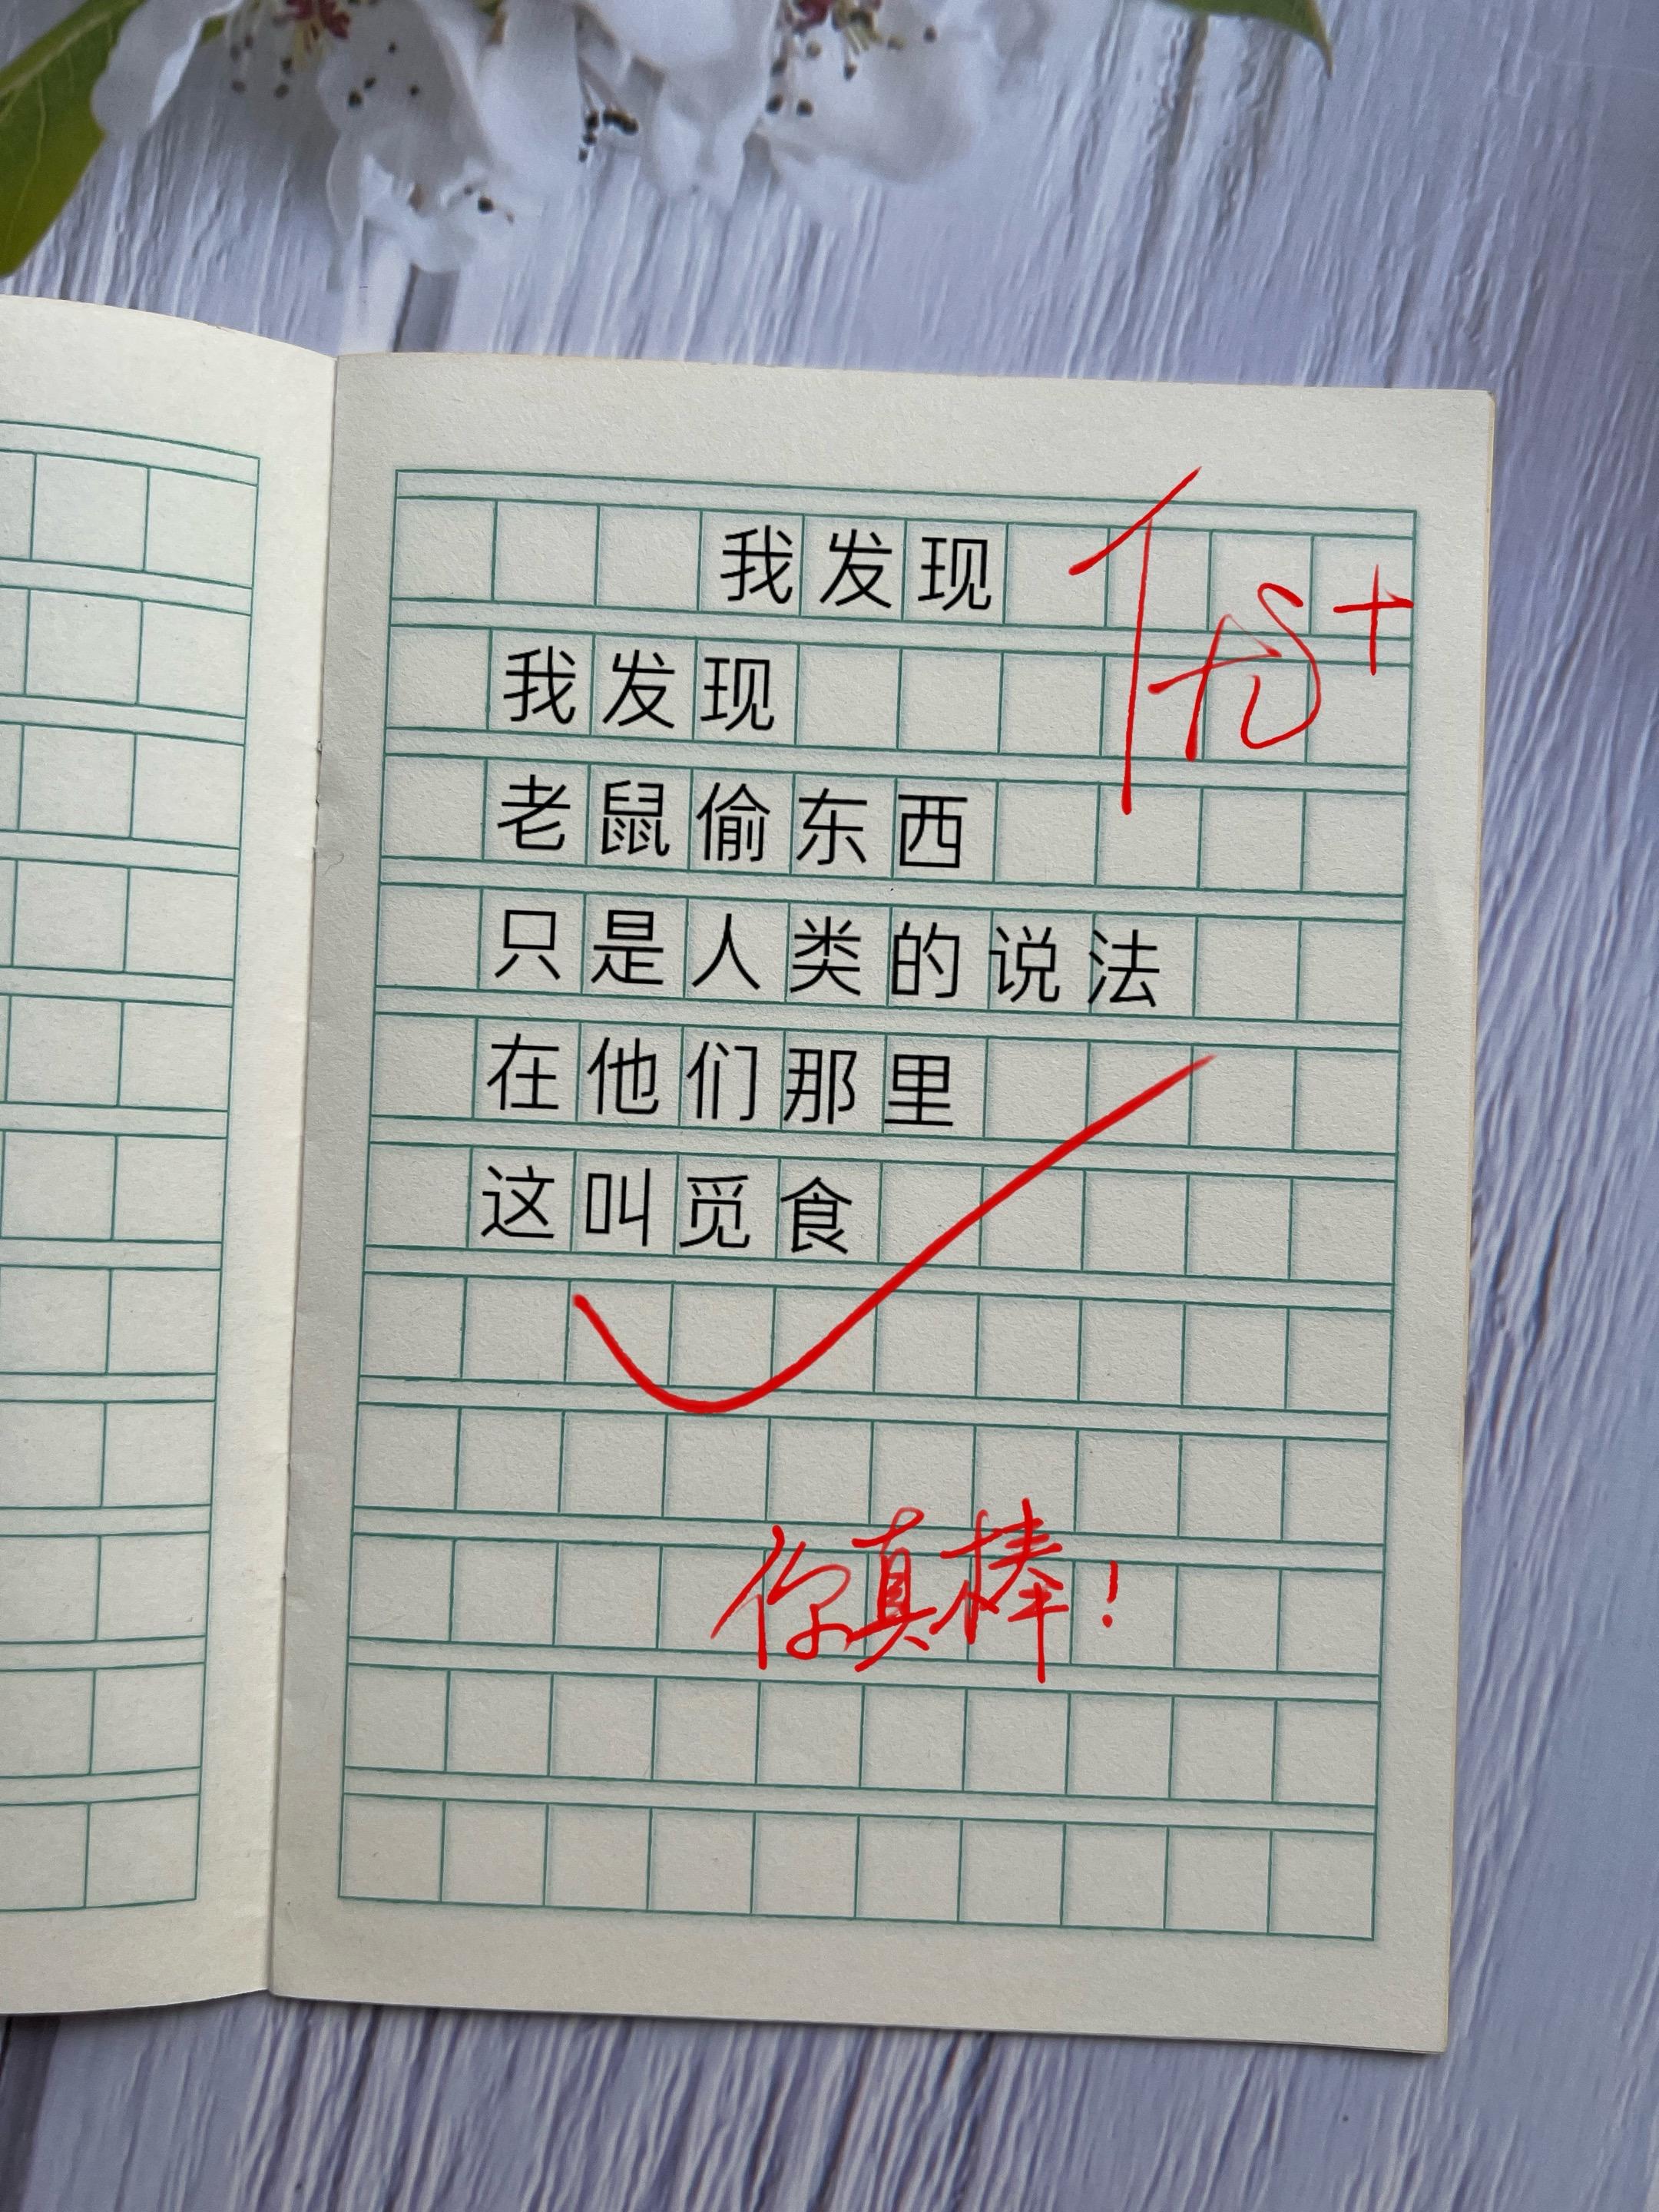 我发现
优+
我发现
老鼠偷东西
只是人类的说法
在他们那里
这叫觅食
你真棒！